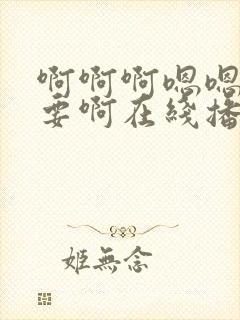 啊啊啊嗯嗯
要啊在綫播
姬無念